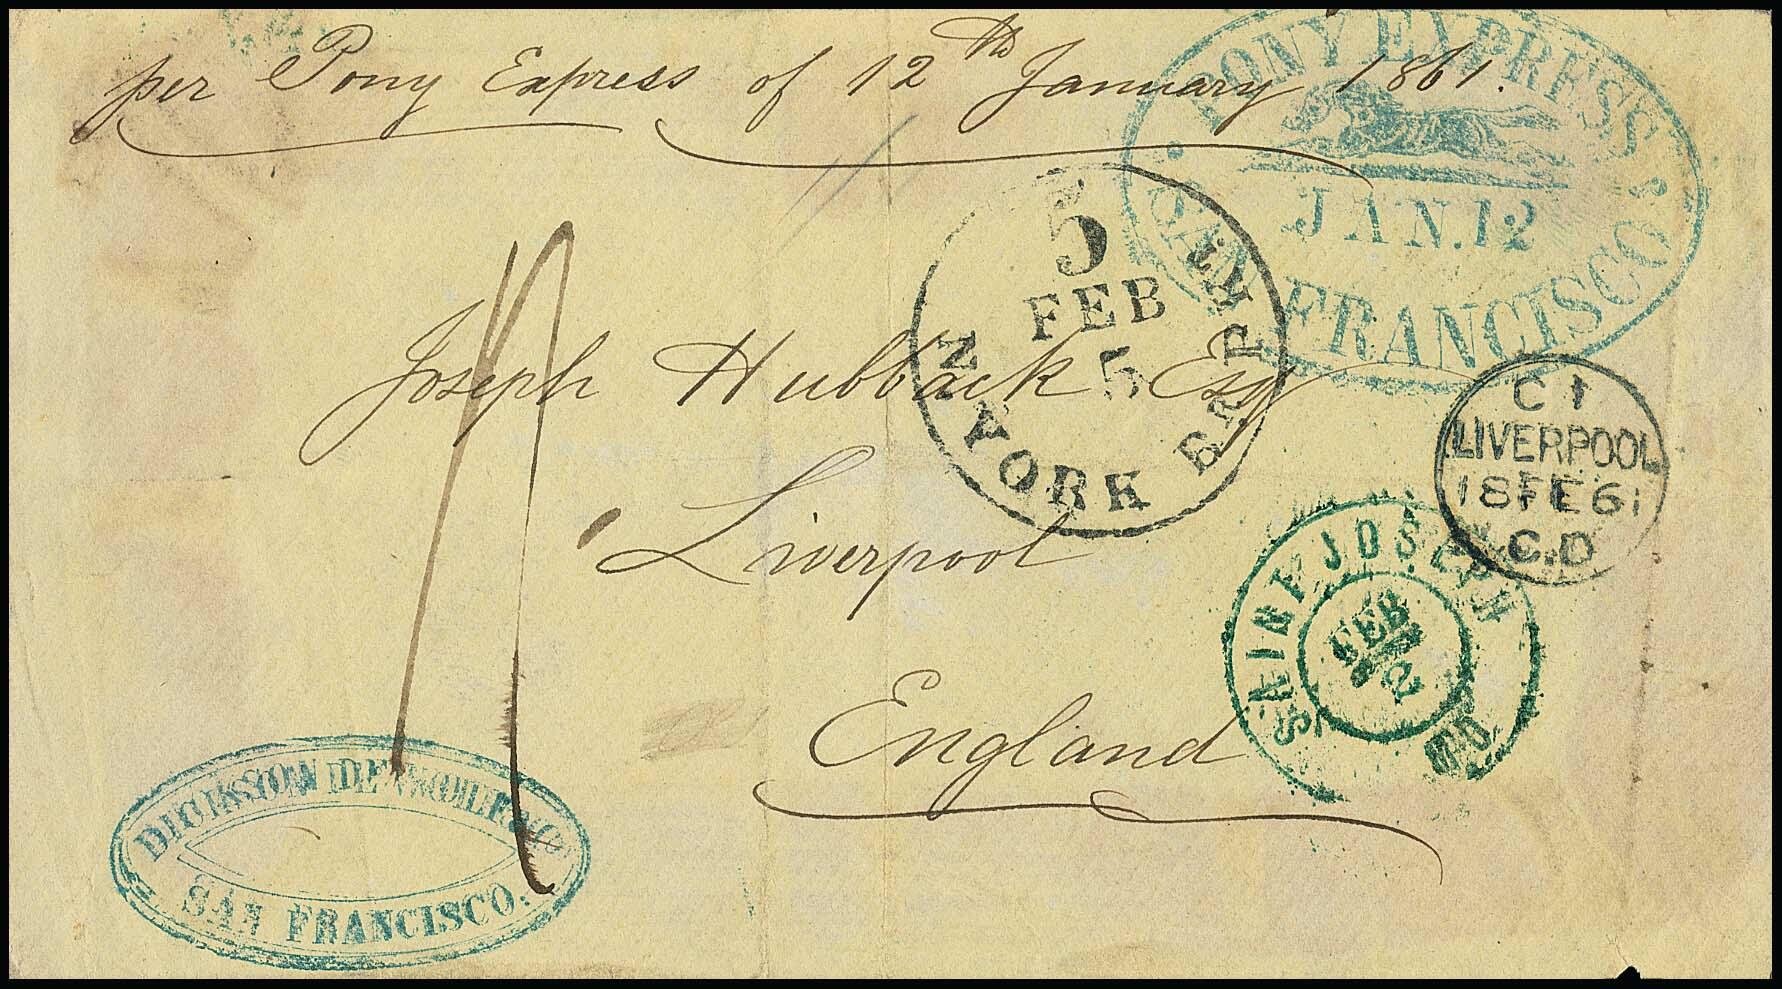 per Pony Express of 12th January 1861.
PONY EXPRESS
JAN. 12
SAN FRANCISCO
5
FEB
5
N YORK BR PKT
Joseph Hubback Esq
Liverpool
England
C 1
LIVERPOOL
18 FE 61
C.D
SAINT JOSEPH
FEB
2
MO.
DICKSON DE WOLF & CO
SAN FRANCISCO.